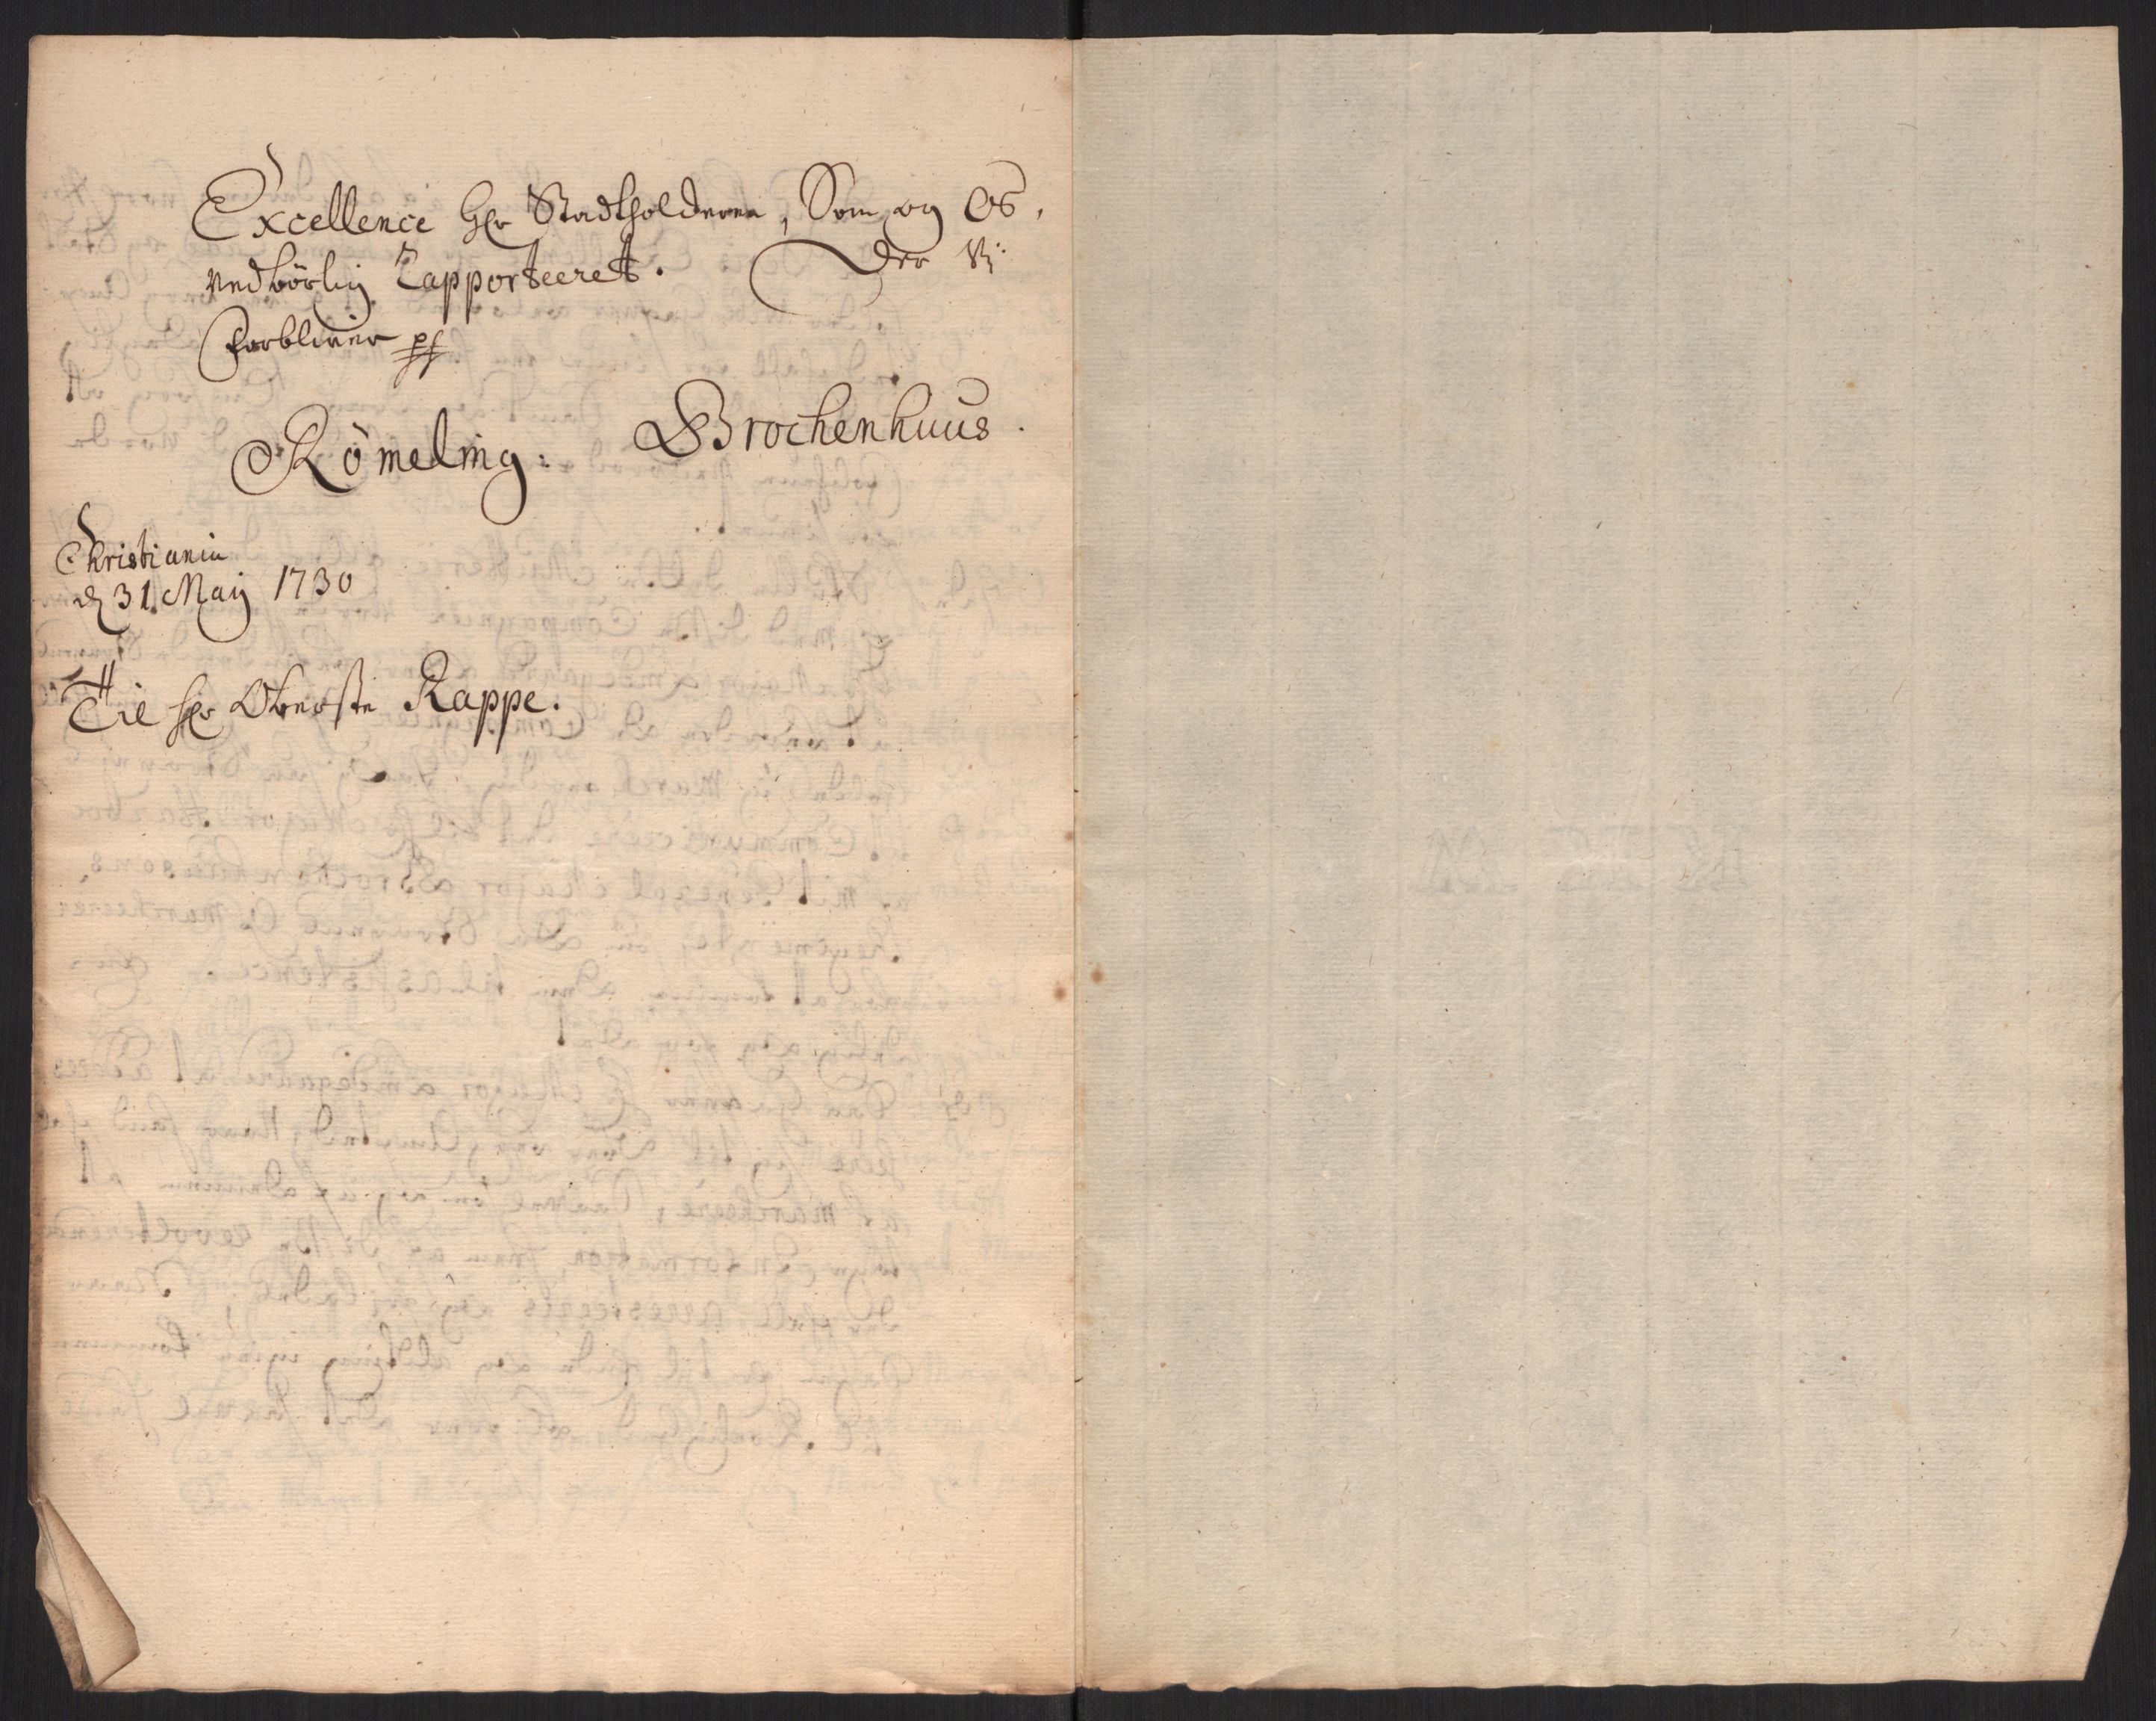 Excellence Hr Stadtholderen, Som og Os,
vedbörlig Rapporteeret. Der Vj:
forbliver
Römeling: Brochenhuus.
Christiania
d 31. Maij 1730
Til Hr Oberste Rappe.